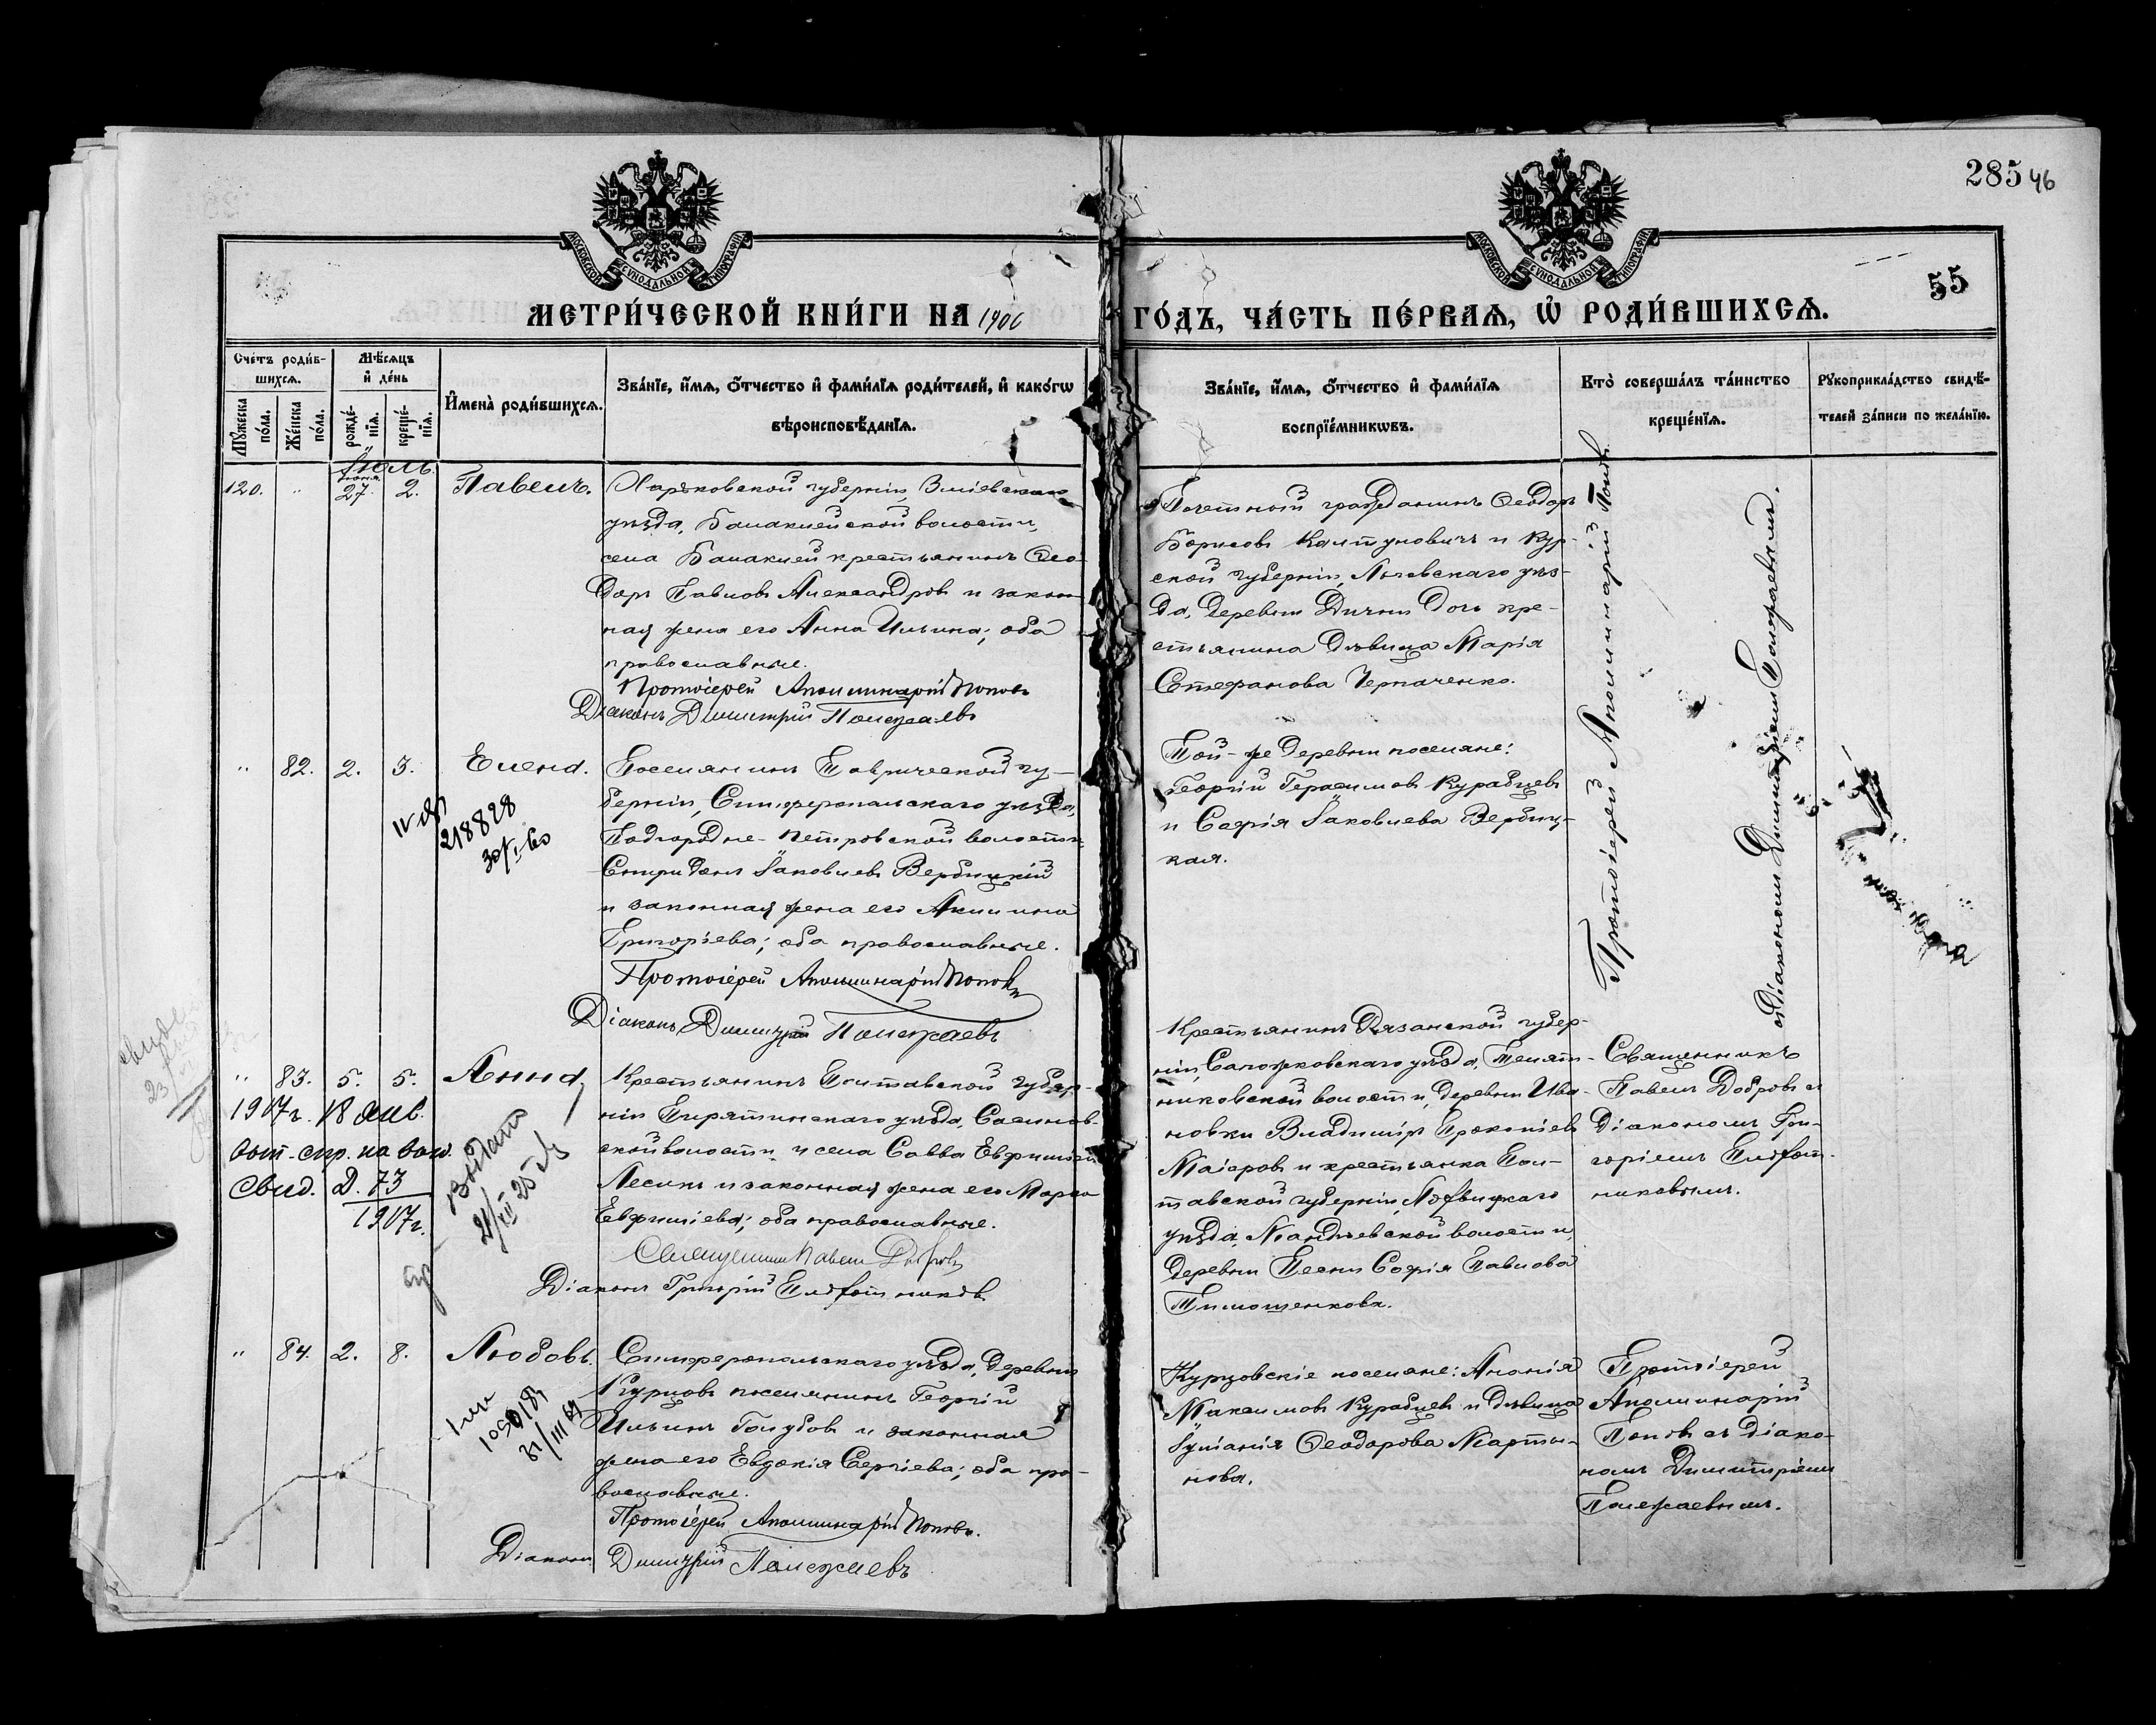 285 46
55
МОСКОВСКОЙ СѴНОДАЛЬНОЙ ТИПОГРАФІИ
МОСКОВСКОЙ СѴНОДАЛЬНОЙ ТИПОГРАФІИ
МЕТРИ́ЧЕСКОЙ КНИ́ГИ НА 1906 ГО́ДЪ, ЧА́СТЬ ПЕ́РВАѦ, Ѡ҆ РОДИ́ВШИХСѦ.
Сче́тъ роди́в-
шихся.
Мѣ́сяцъ
и҆ де́нь
Мꙋ́жеска по́ла.
Же́нска по́ла.
рожде́-нїя.
креще́-нїя.
И҆мена̀ роди́вшихся.
Зва́нїе, и҆́мя, ѻ҆́тчество и҆ фами́лїя роди́телей, и҆ како́гѡ
вѣроисповѣ́данїя.
Зва́нїе, и҆́мя, ѻ҆́тчество и҆ фами́лїя
воспрїе́мникѡвъ.
Кто̀ соверша́лъ та́инство
креще́нїя.
Рꙋкоприкла́дство свидѣ́-
телей за́писи по жела́нїю.
Іюль.
120. " Іюня 27. 2. Павелъ.
Харьковской губерніи, Зміевскаго
уѣзда, Балаклейской волости,
села Балаклеи крестьянинъ Ѳео-
доръ Павловъ Александровъ и закон-
ная жена его Анна Ильина; оба
православные.
Протоіерей Аполлинарій Поповъ
Діаконъ Димитрій Полежаевъ
Почетный гражданинъ Ѳеодоръ
Борисовъ Калтуновичъ и Кур-
ской губерніи, Льговскаго уѣз-
да, деревни Дични дочь кре-
стьянина дѣвица Марія
Стефанова Черпаченко.
Протоіерей Аполлинарій Поповъ
съ Діакономъ Димитріемъ Полежаевымъ.
" 82. 2. 3. Елена.
218828
Поселянинъ Таврической гу-
берніи, Симферопольскаго уѣзда,
Подгородне-Петровской волости
Спиридонъ Іаковлевъ Вербицкій
и законная жена его Акилина
Григорьева; оба православные.
Протоіерей Аполлинарій Поповъ
Діаконъ Димитрій Полежаевъ
Той-же деревни поселяне:
Георгій Герасимовъ Курабцевъ
и Софія Іаковлева Вербиц-
кая.
" 83. 5. 5. Анна,
1917г. 18 янв.
свид. Д. 73
1917г.
Выдано
Крестьянинъ Полтавской губер-
ніи Пирятинскаго уѣзда, Сасинов-
ской волости и села Савва Евфиміевъ
Лесикъ и законная жена его Марѳа
Евфиміева; оба православные.
Священникъ Павелъ Добровъ
Діаконъ Григорій Плотниковъ.
Крестьянинъ Рязанской губер-
ніи, Сапожковскаго уѣзда,
волости, деревни Ива-
новки Владиміръ Прокопіевъ
Маіоровъ и крестьянка Пол-
тавской губерніи, Лохвицкаго
уѣзда, волости,
деревни Пески Софія Павлова
Тимошенкова.
Священникъ
Павелъ Добровъ съ
Діакономъ Гри-
горіемъ Плотни-
никовымъ.
" 84. 2. 8. Любовь.
Симферопольскаго уѣзда, деревни
Курцовъ поселянинъ Георгій
Ильинъ Голубовъ и законная
жена его Евдокія Сергіева; оба пра-
вославные.
Протоіерей Аполлинарій Поповъ.
Діаконъ Димитрій Полежаевъ
Курцовскіе поселяне: Ананія
Максимовъ Курабцевъ и дѣвица
Іуліанія Ѳеодорова Марты-
нова.
Протоіерей
Аполлинарій
Поповъ съ діако-
номъ Димитріемъ
Полежаевымъ.